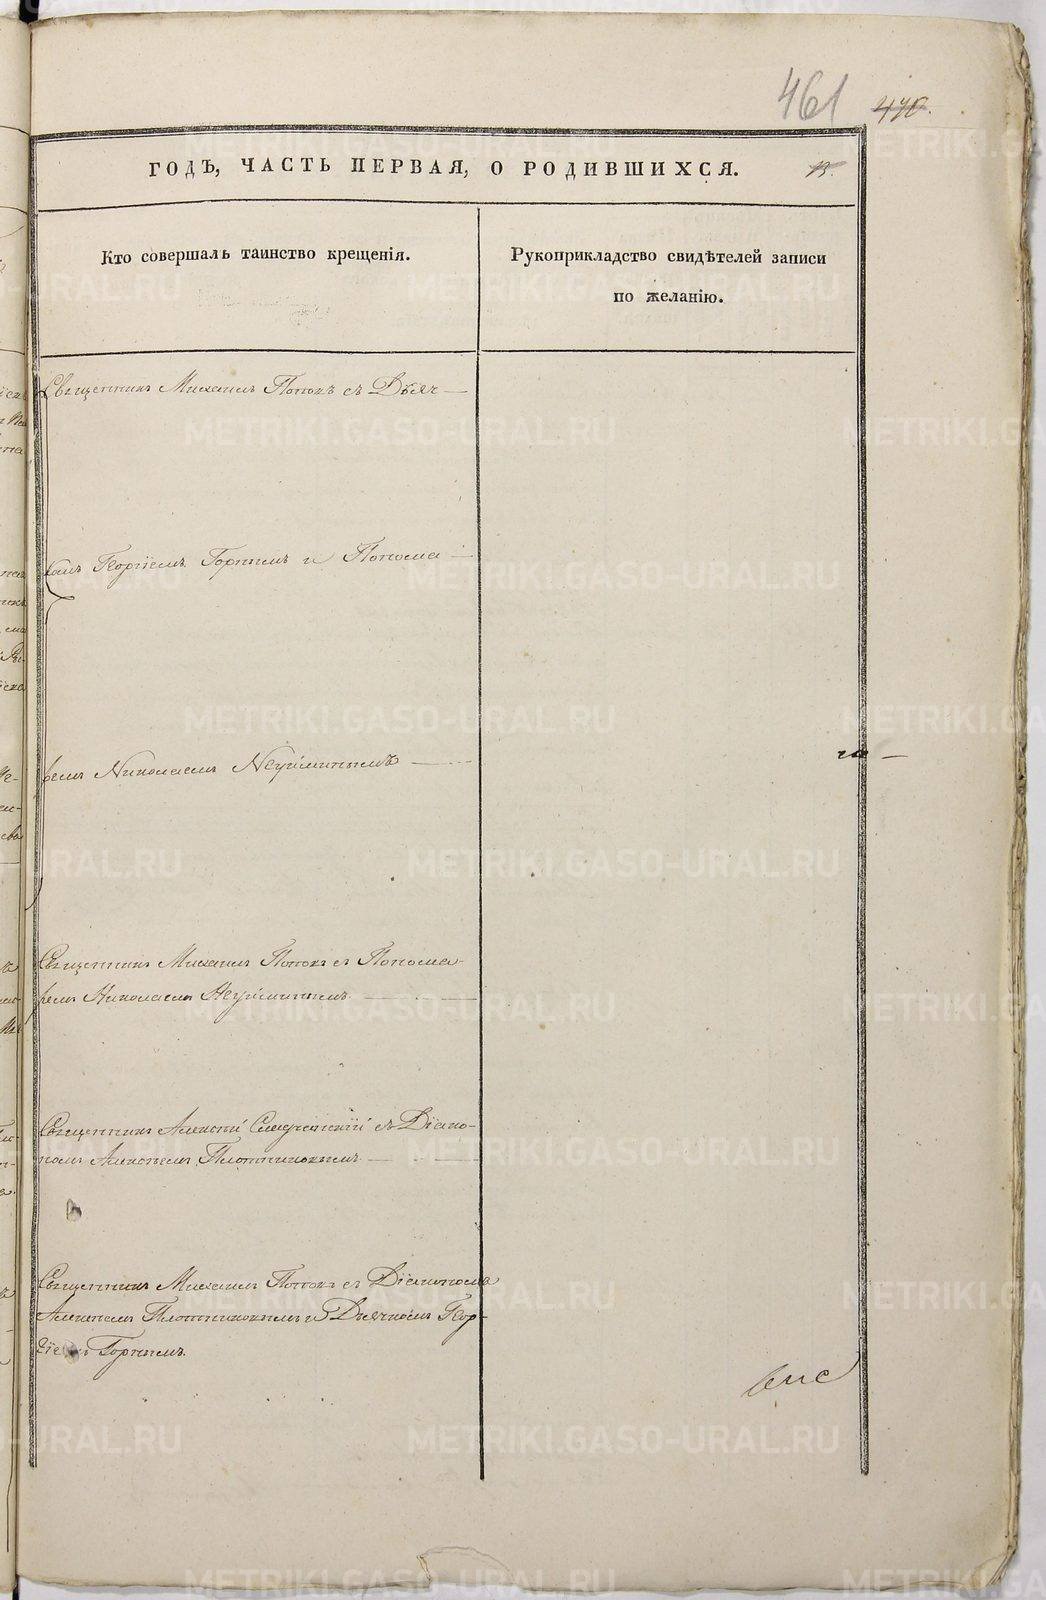 461 470.
ГОДЪ, ЧАСТЬ ПЕРВАЯ, О РОДИВШИХСЯ. 13.
Кто совершалъ таинство крещенія.
Рукоприкладство свидѣтелей записи
по желанію.
Священникъ Михаилъ Поповъ съ Дьяч
комъ Георгіемъ Горнымъ и Понома
ремъ Николаемъ Неуйминымъ
го
Священникъ Михаилъ Поповъ съ Понома-
ремъ Николаемъ Неуйминымъ
Священникъ Алексій Смиренскій съ Діако-
номъ Плотниковымъ
Священникъ Михаилъ Поповъ съ Діакономъ
Плотниковымъ и Дьячкомъ Геор-
гіемъ Горнымъ.
METRIKI.GASO-URAL.RU